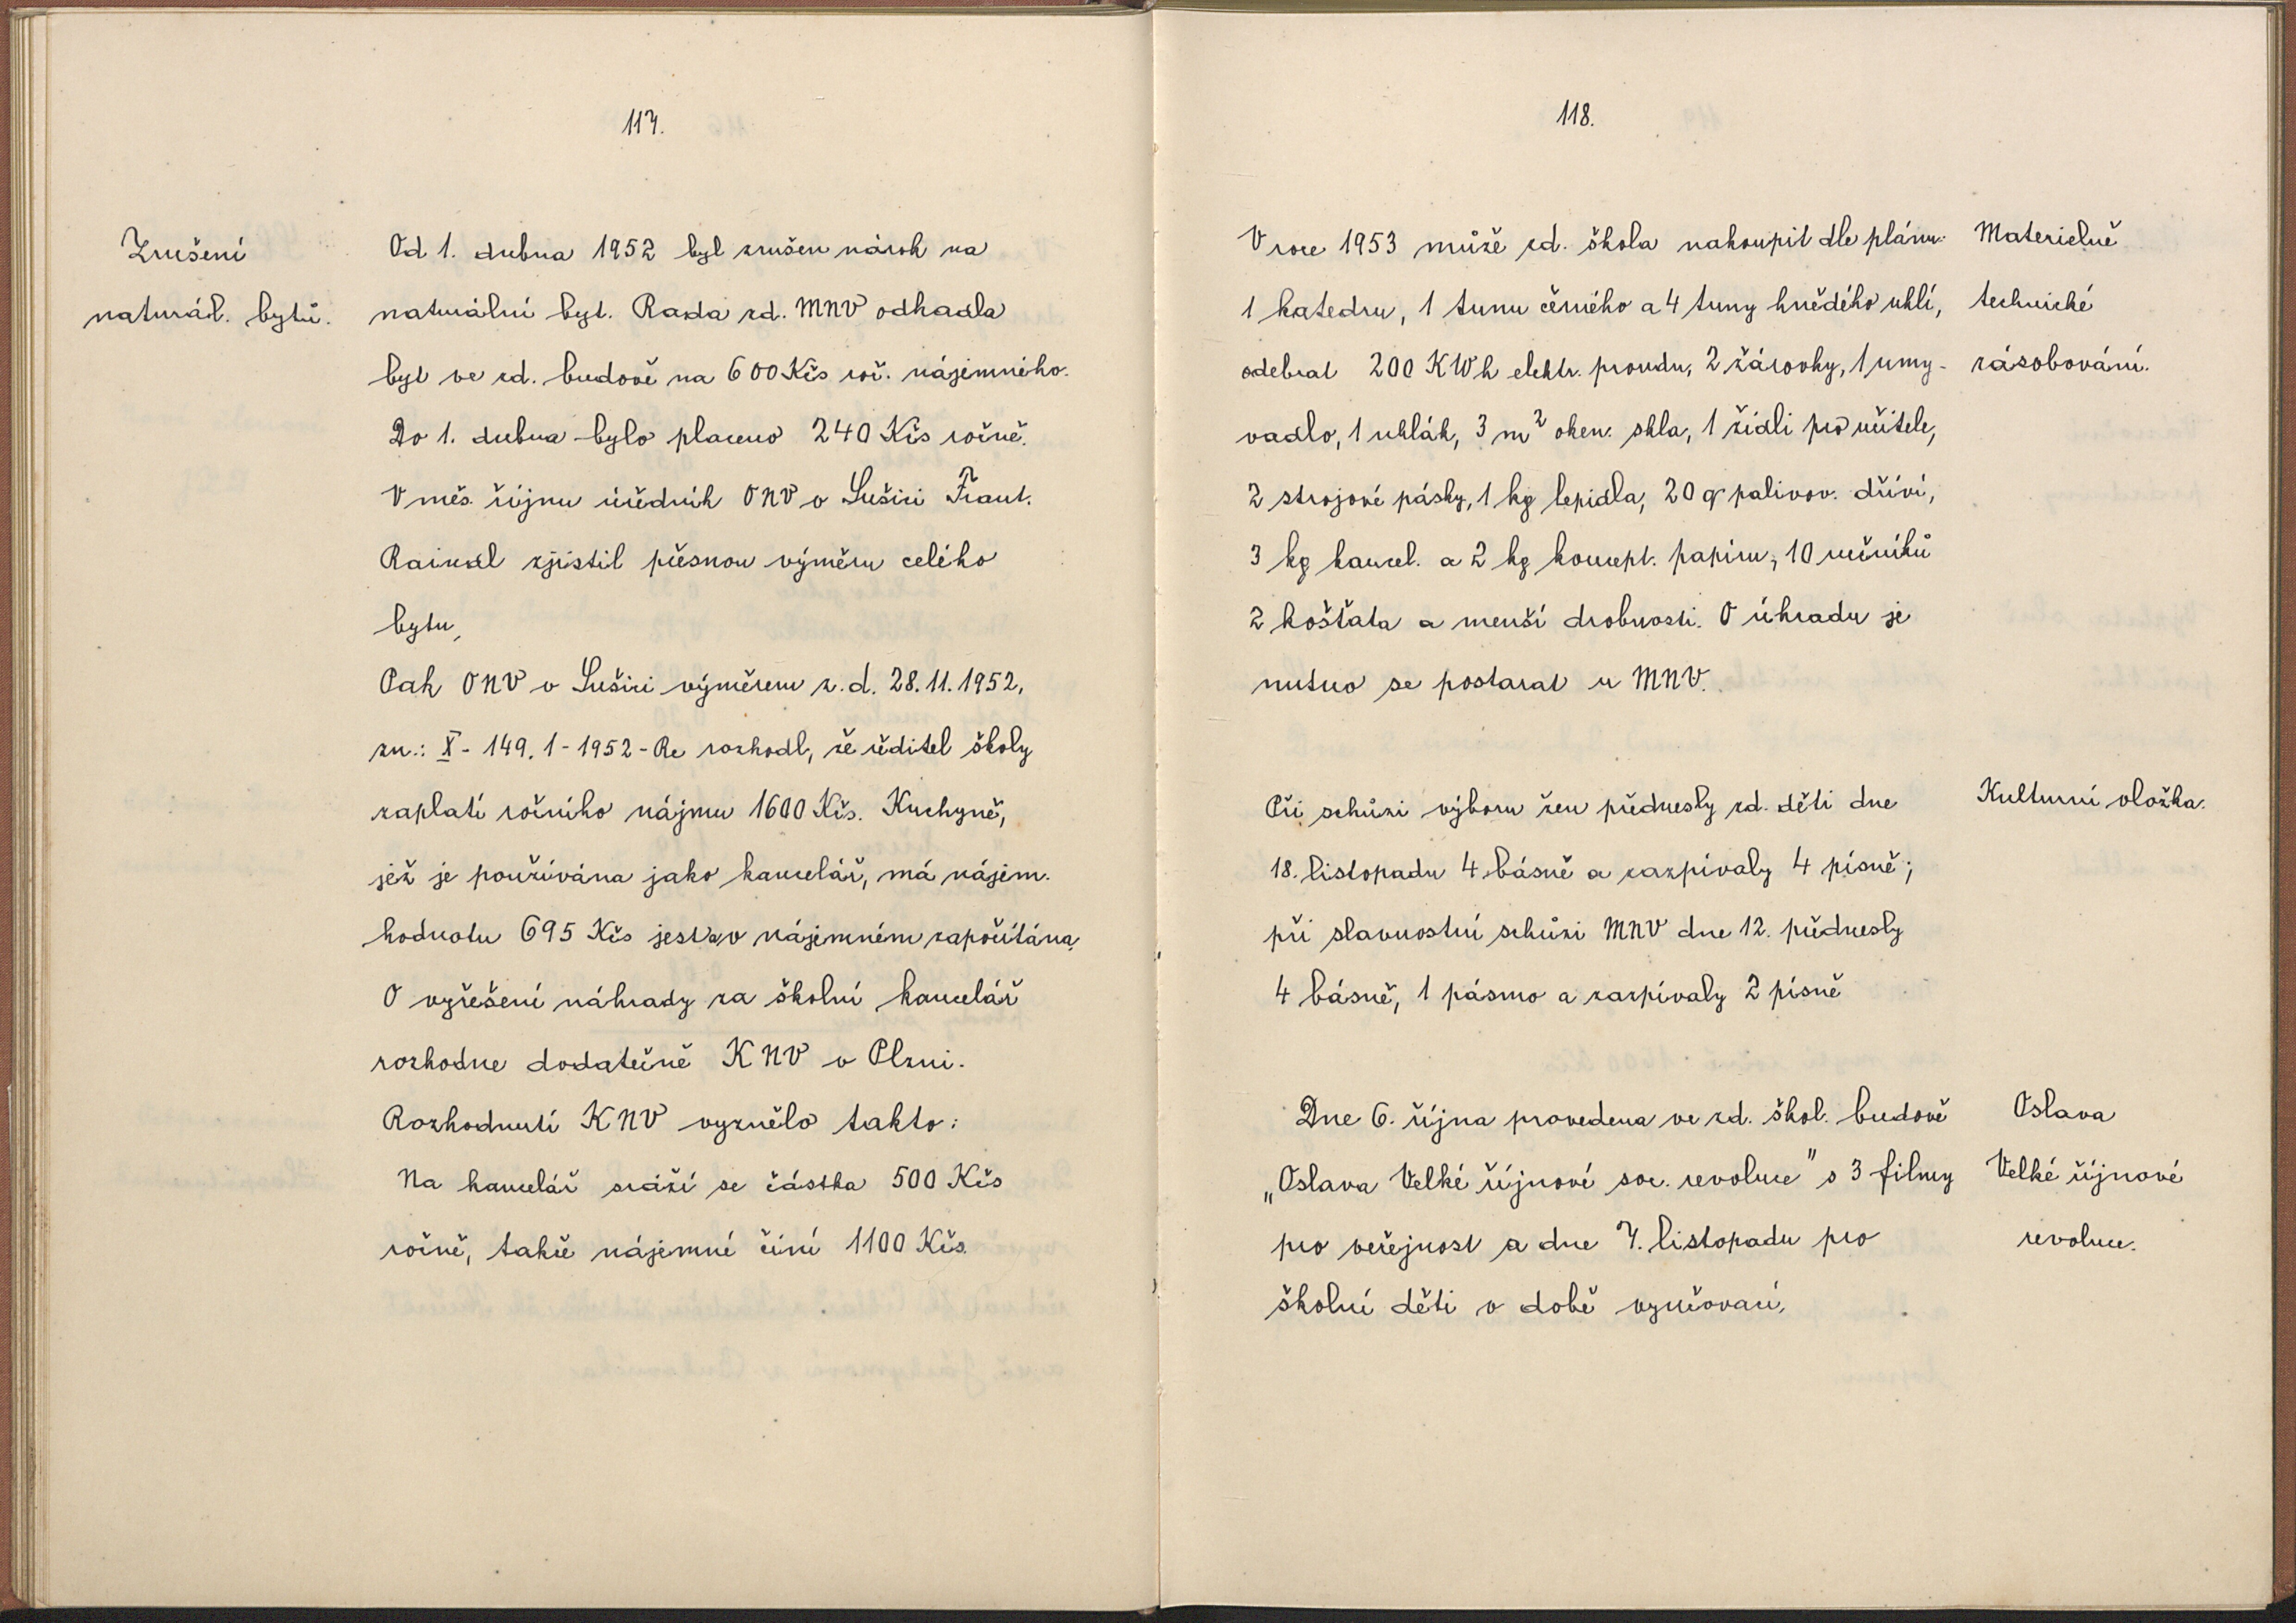 117.
Zrušení
naturál. bytů.
Od 1. dubna 1952 byl zrušen nárok na
naturální byt. Rada zd. MNV odhadla
byt ve zd. budově na 600 Kčs roč. nájemného.
Do 1. dubna bylo placeno 240 Kčs ročně.
V měs. říjnu úředník ONV v Sušici Frant.
Raindl zjistil přesnou výměru celého
bytu,
Pak ONV v Sušici výměrem z. d. 28.11.1952,
zn.: X - 149.1-1952-Re rozhodl, že ředitel školy
zaplatí ročního nájmu 1600 Kčs. Kuchyně,
jež je používána jako kancelář, má nájem.
hodnotu 695 Kčs jest v nájemném započítána.
O vyřešení náhrady za školní kancelář
rozhodne dodatečně KNV v Plzni.
Rozhodnutí KNV vyznělo takto:
Na kancelář sráží se částka 500 Kčs
ročně, takže nájemné činí 1100 Kčs.
118.
V roce 1953 může zd. škola nakoupit dle plánu:
1 katedru, 1 tunu černého a 4 tuny hnědého uhlí,
odebrat 200 KWh elektr. proudu, 2 žárovky, 1 umy-
vadlo, 1 uhlák, 3 m² oken. skla, 1 židli pro učitele,
2 strojové pásky, 1 kg lepidla, 20 q palivov. dříví,
3 kg kancel. a 2 kg koncept. papíru, 10 ručníků
2 košťata a menší drobnosti. O úhradu je
nutno se postarat u MNV.
Materielně
technické
zásobování.
Při schůzi výboru žen přednesly zd. děti dne
18. listopadu 4 básně a zazpívaly 4 písně;
při slavnostní schůzi MNV dne 12. přednesly
4 básně, 1 pásmo a zazpívaly 2 písně
Kulturní vložka.
Dne 6. října provedena ve zd. škol. budově
„Oslava Velké říjnové soc. revoluce" s 3 filmy
pro veřejnost a dne 7. listopadu pro
školní děti v době vyučovací.
Oslava
Velké říjnové
revoluce.